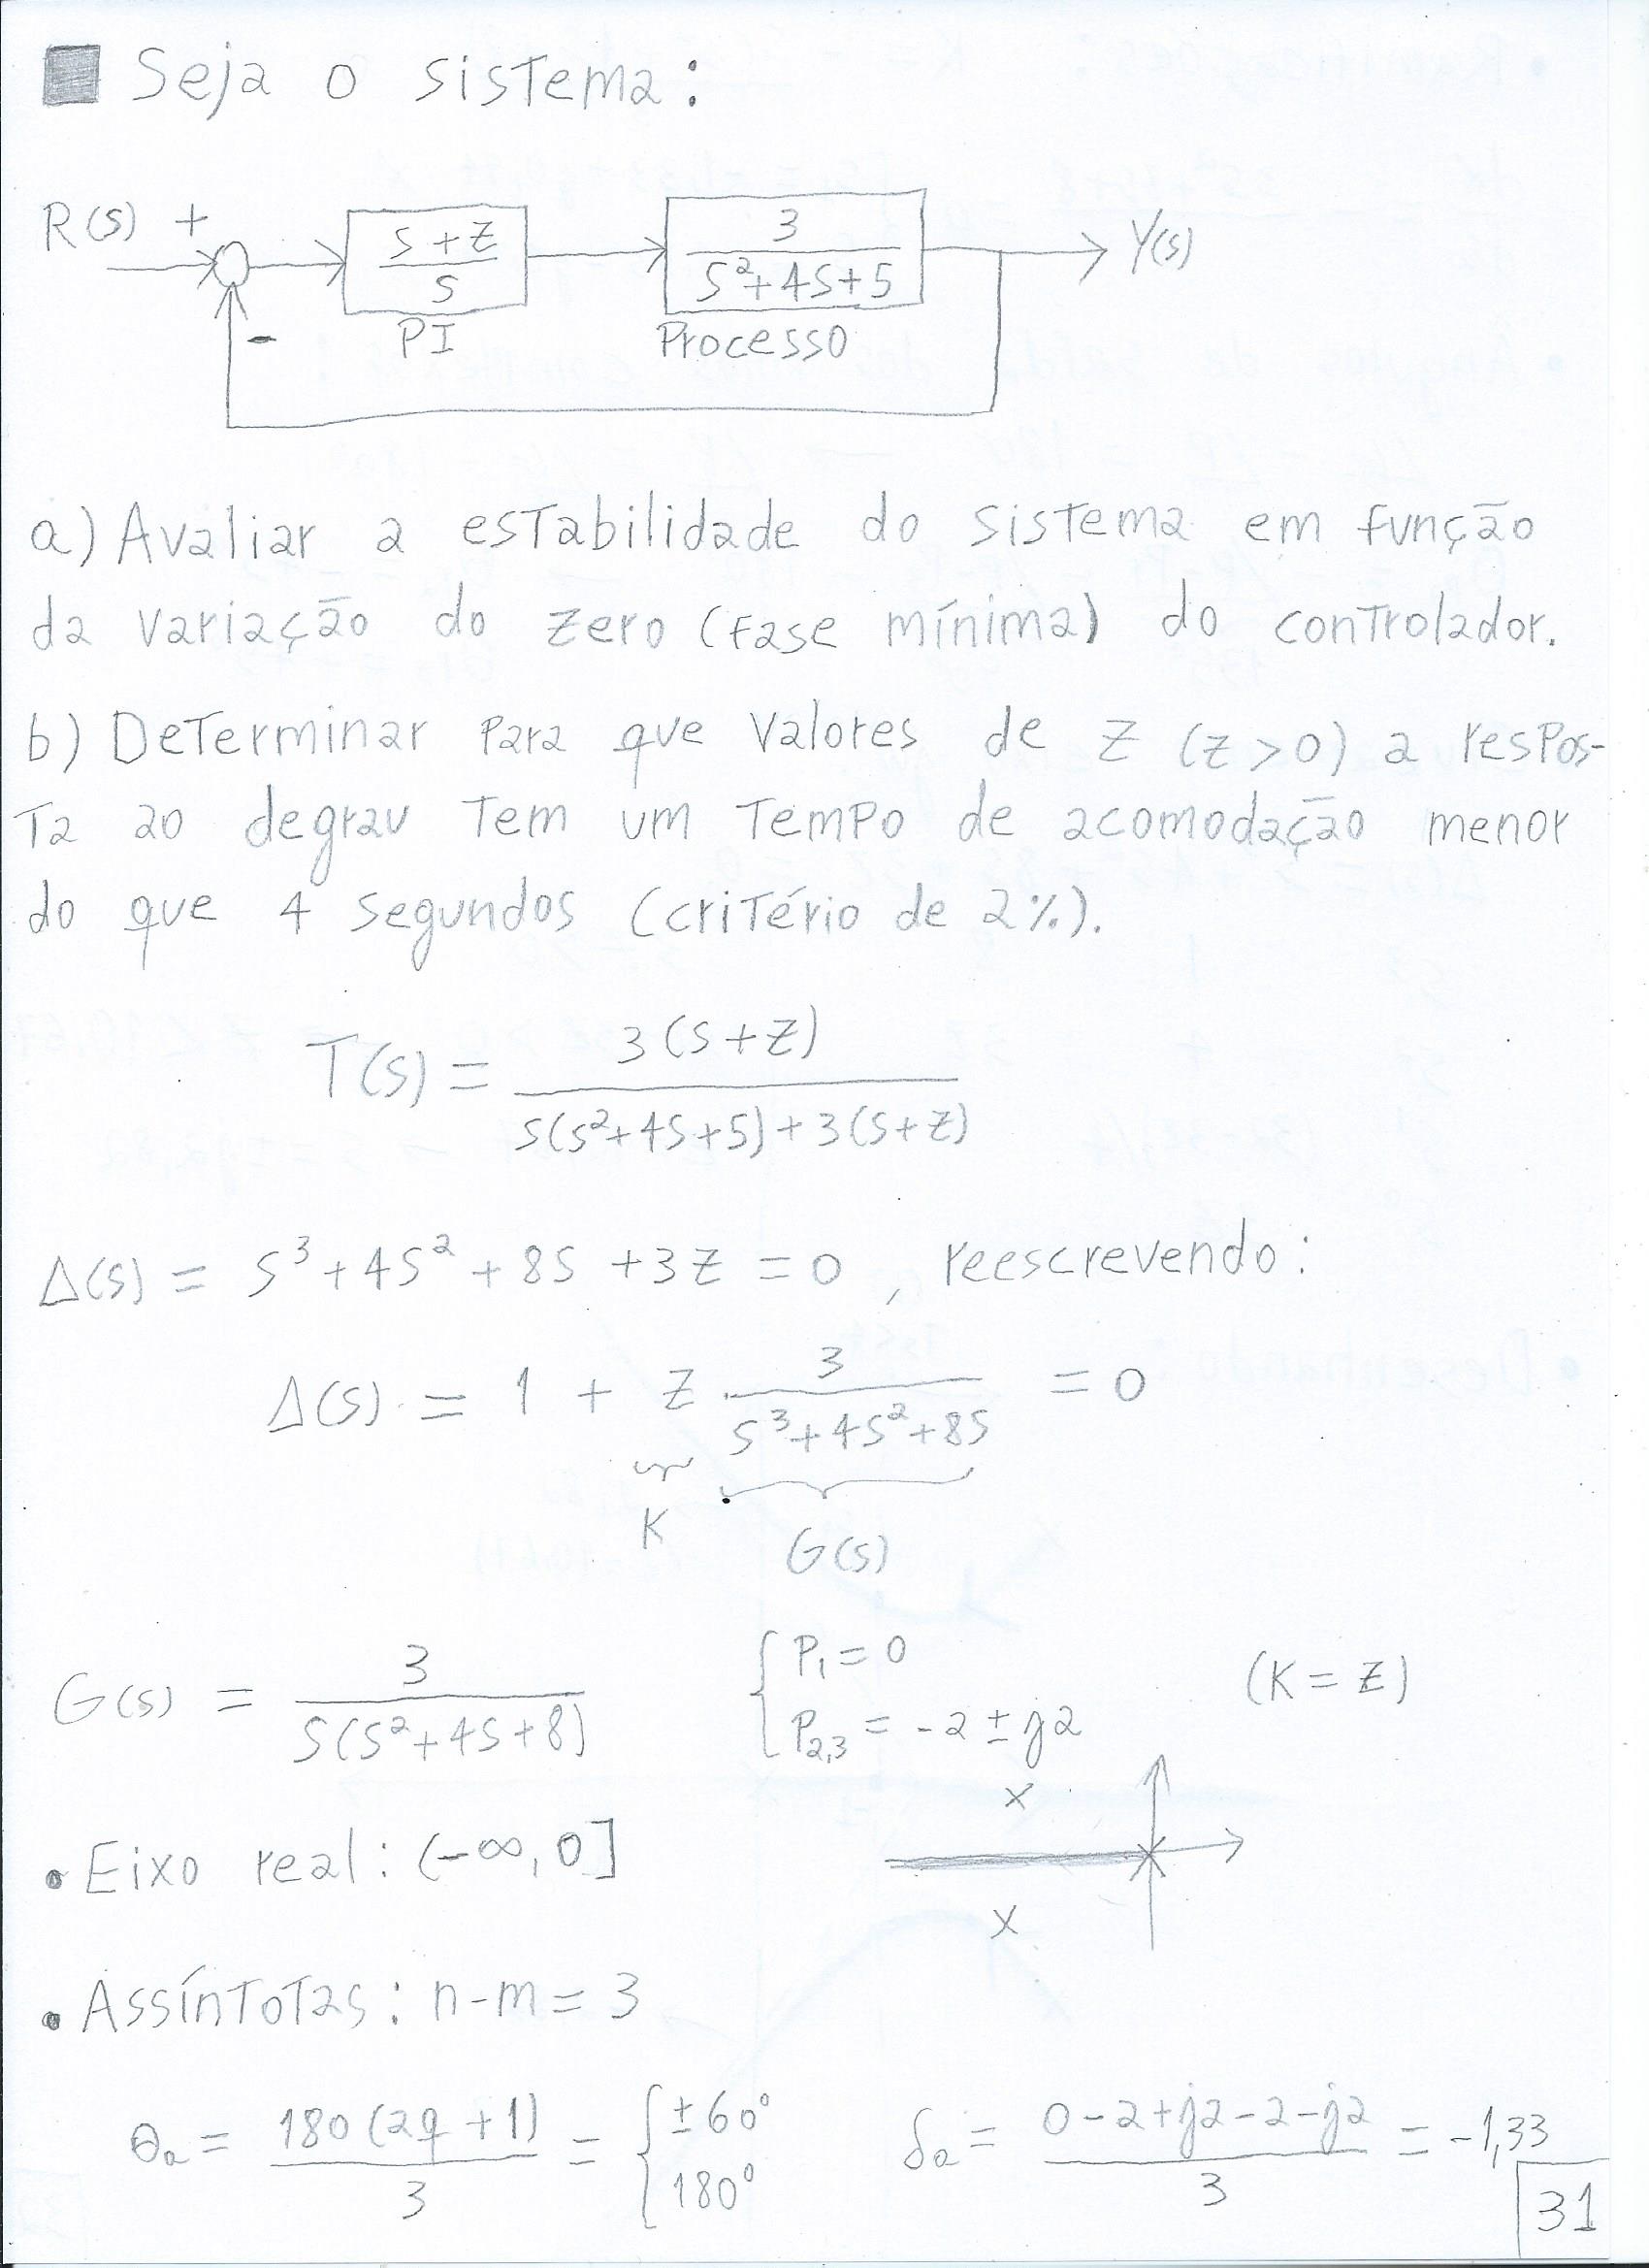 Seja o sistema:
R(s) + s+z/s 3/s²+4s+5 Y(s)
- PI Processo
a) Avaliar a estabilidade do sistema em função
da variação do zero (fase mínima) do controlador.
b) Determinar para que valores de z (z>0) a respos-
ta ao degrau tem um tempo de acomodação menor
do que 4 segundos (critério de 2%).
T(s) = 3(s+z) / s(s²+4s+5)+3(s+z)
Δ(s) = s³+4s²+8s+3z = 0, reescrevendo:
Δ(s) = 1 + z · 3/s³+4s²+8s = 0
K G(s)
G(s) = 3/s(s²+4s+8) { P₁ = 0 P₂,₃ = -2 ± j2 (K = z)
• Eixo real: (-∞, 0]
• Assíntotas: n-m = 3
θa = 180(2q+1)/3 = { ±60° 180° δa = 0-2+j2-2-j2/3 = -1,33
31